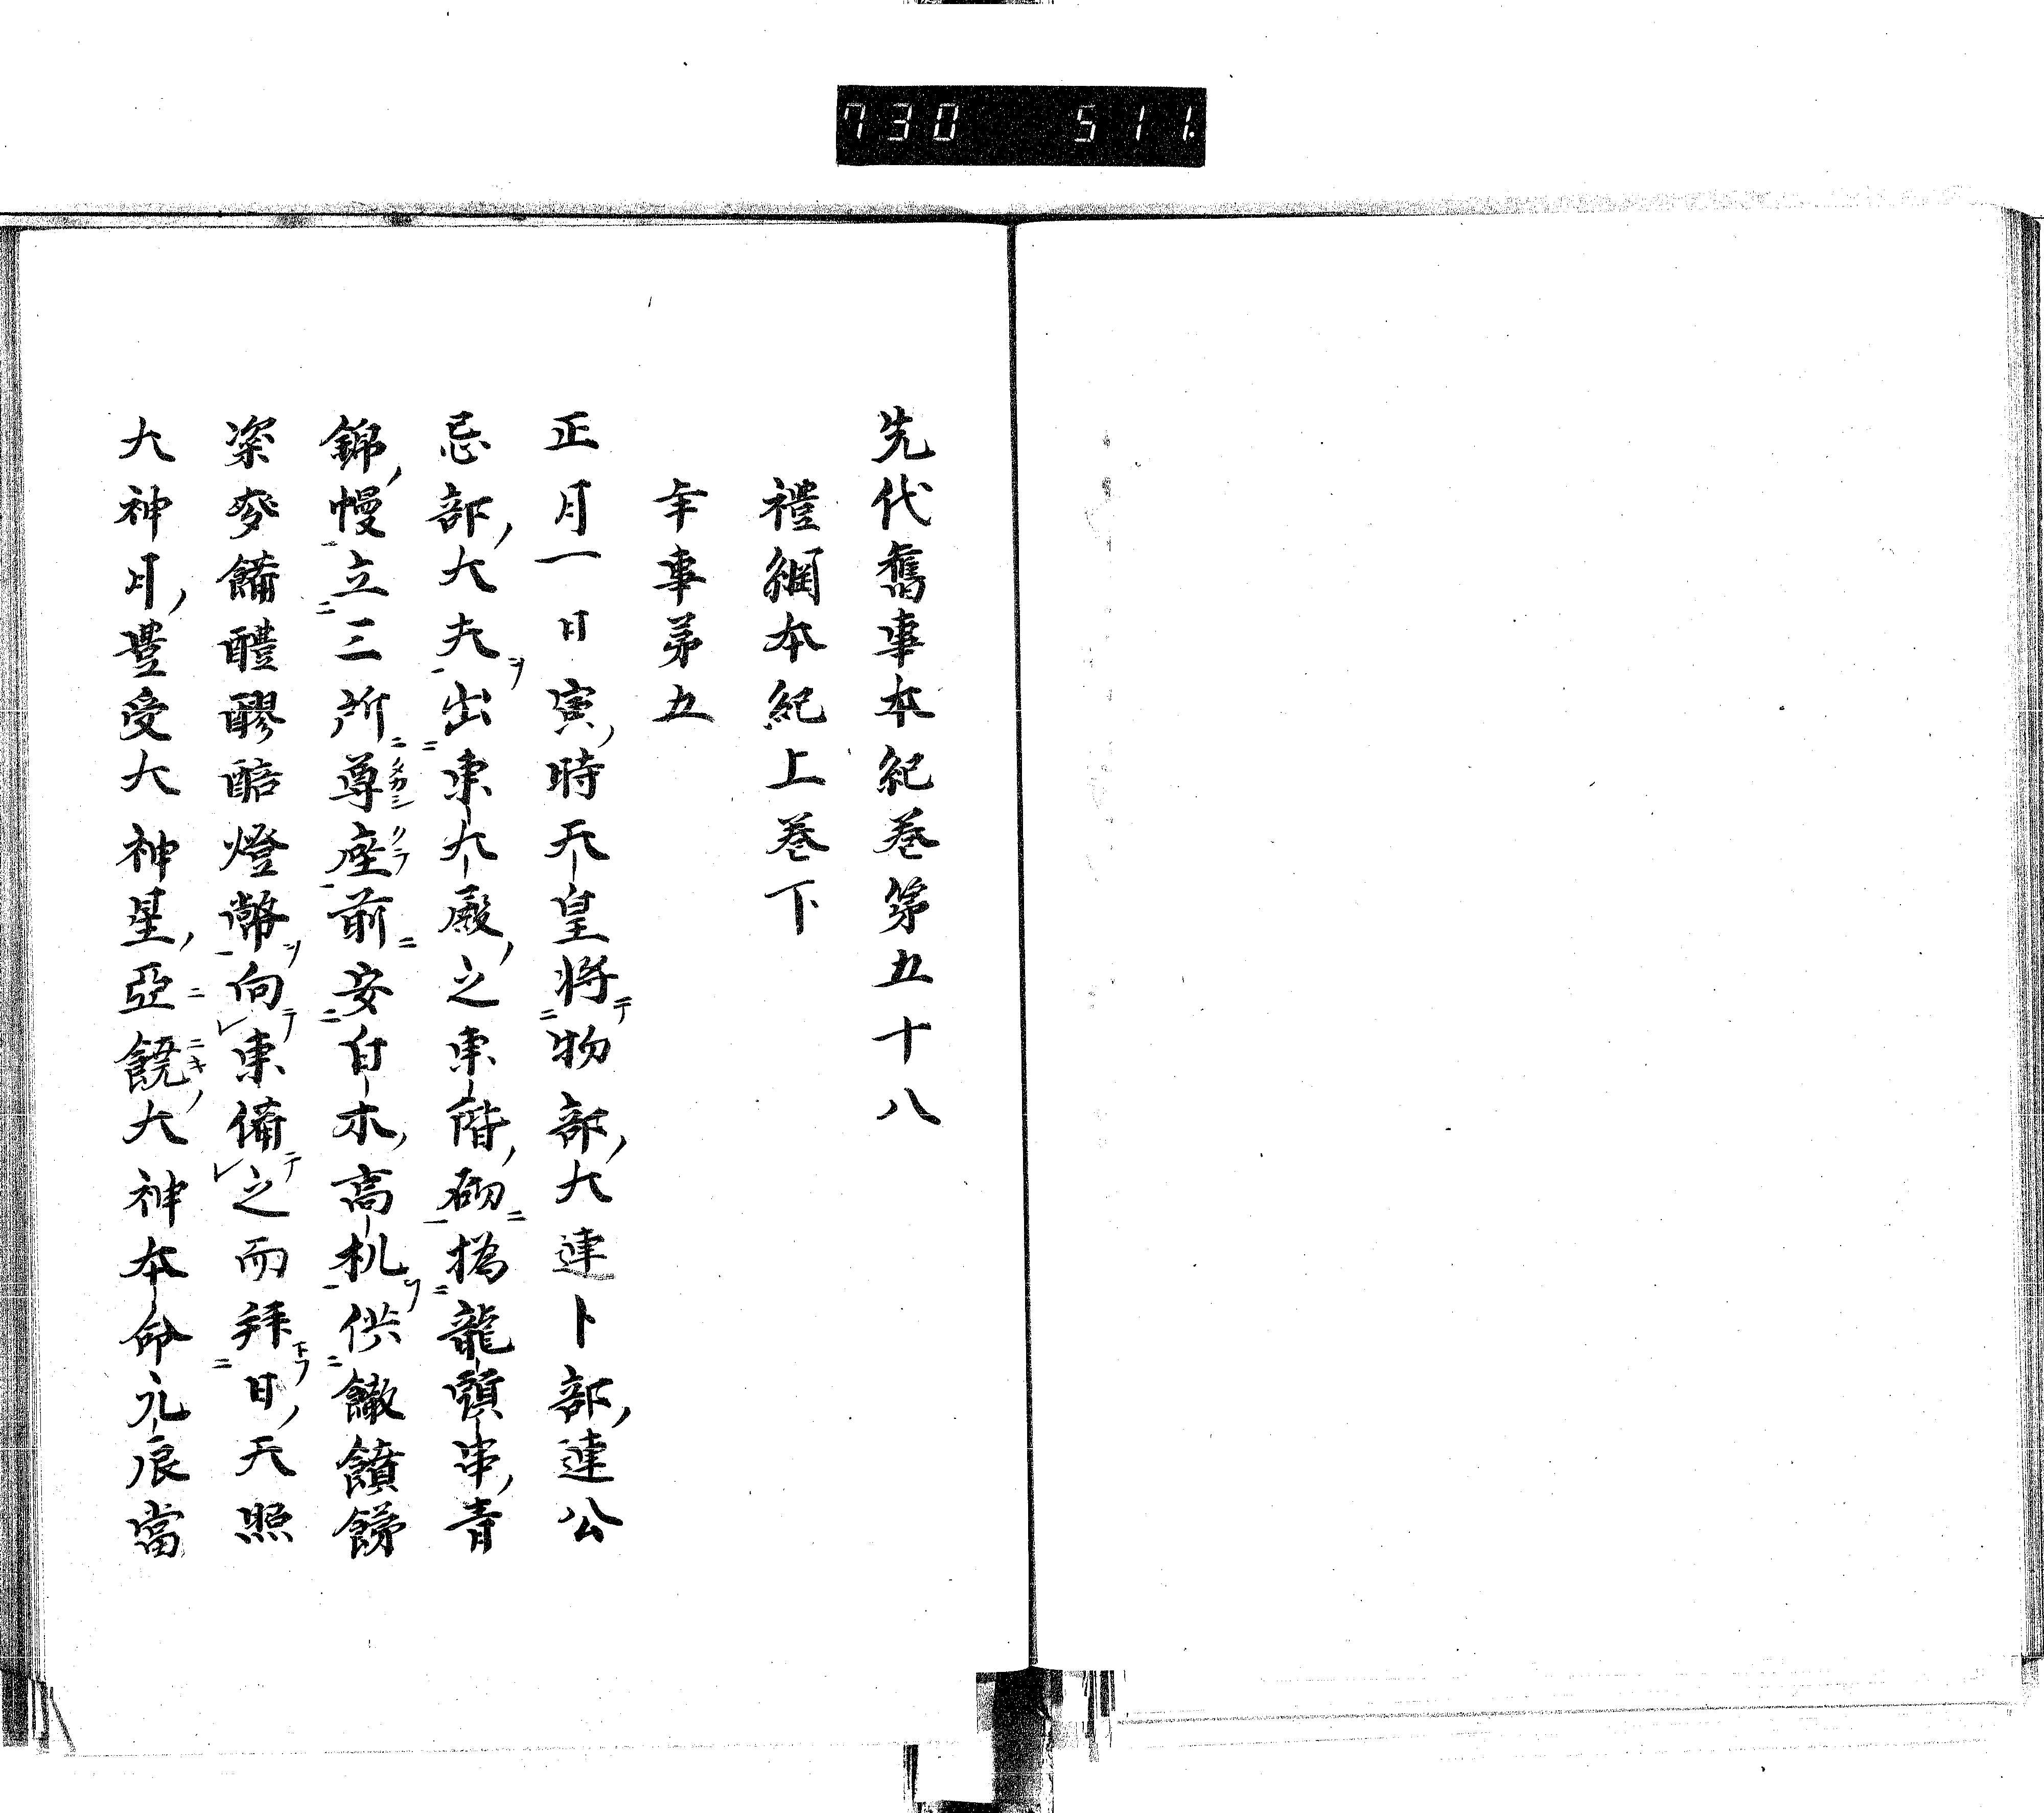 730 511.
先代舊事本紀卷第五十八
禮綱本紀上卷下
年事第五
正月一日寅時天皇將物部大連卜部連公
忌部大夫出東大殿之東階砌搗龍頭串青
錦幔立三所尊座前安白木高机供饊饙
粢麥餙醴醪醅燈幣向東備之而拜日天照
大神月豊受大神星亞饒大神本命元辰當